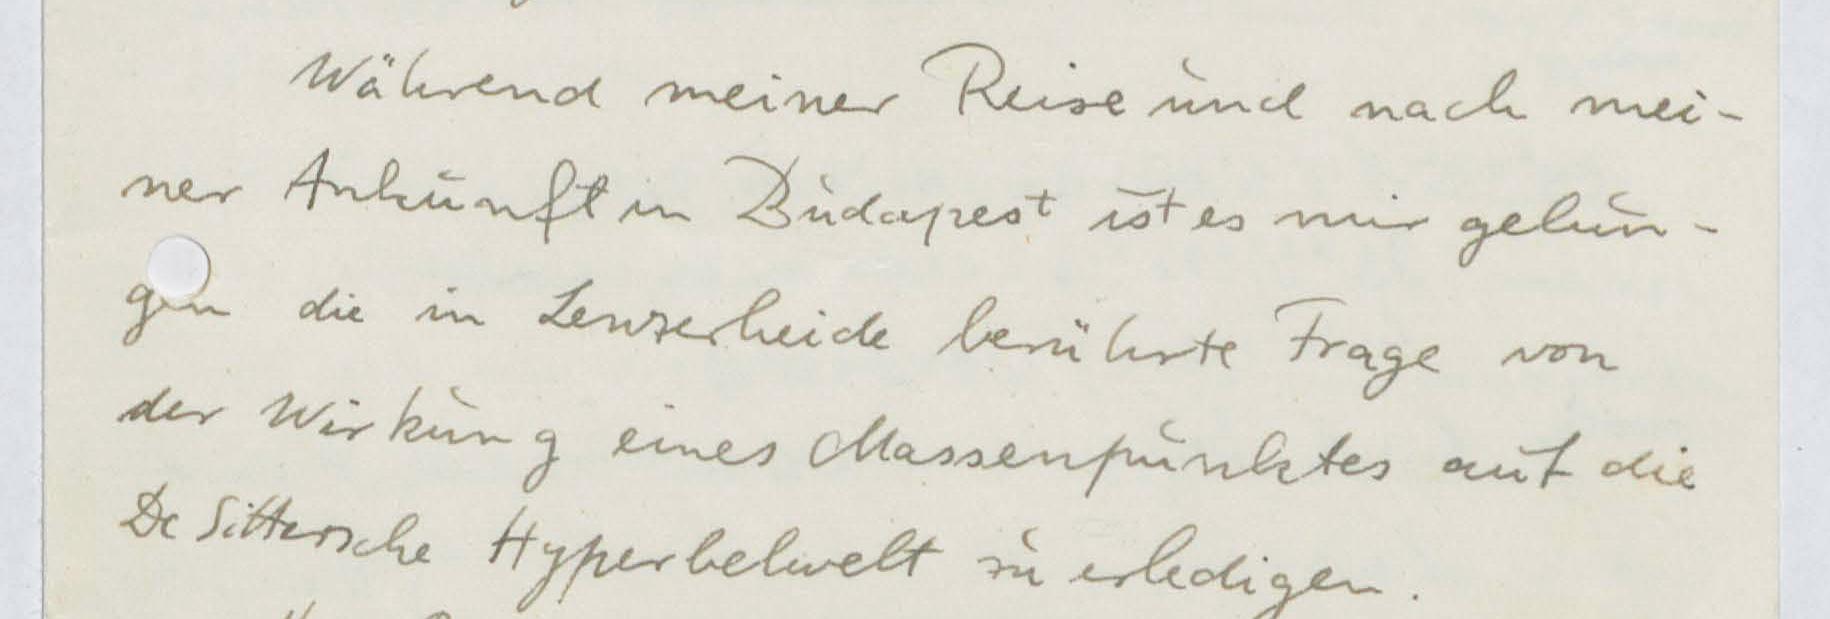 Während meiner Reise und nach mei-
ner Ankunft in Budapest ist es mir gelun-
gen die in Lenzerheide berührte Frage von
der Wirkung eines Massenpunktes auf die
De Sittersche Hyperbelwelt zu erledigen.